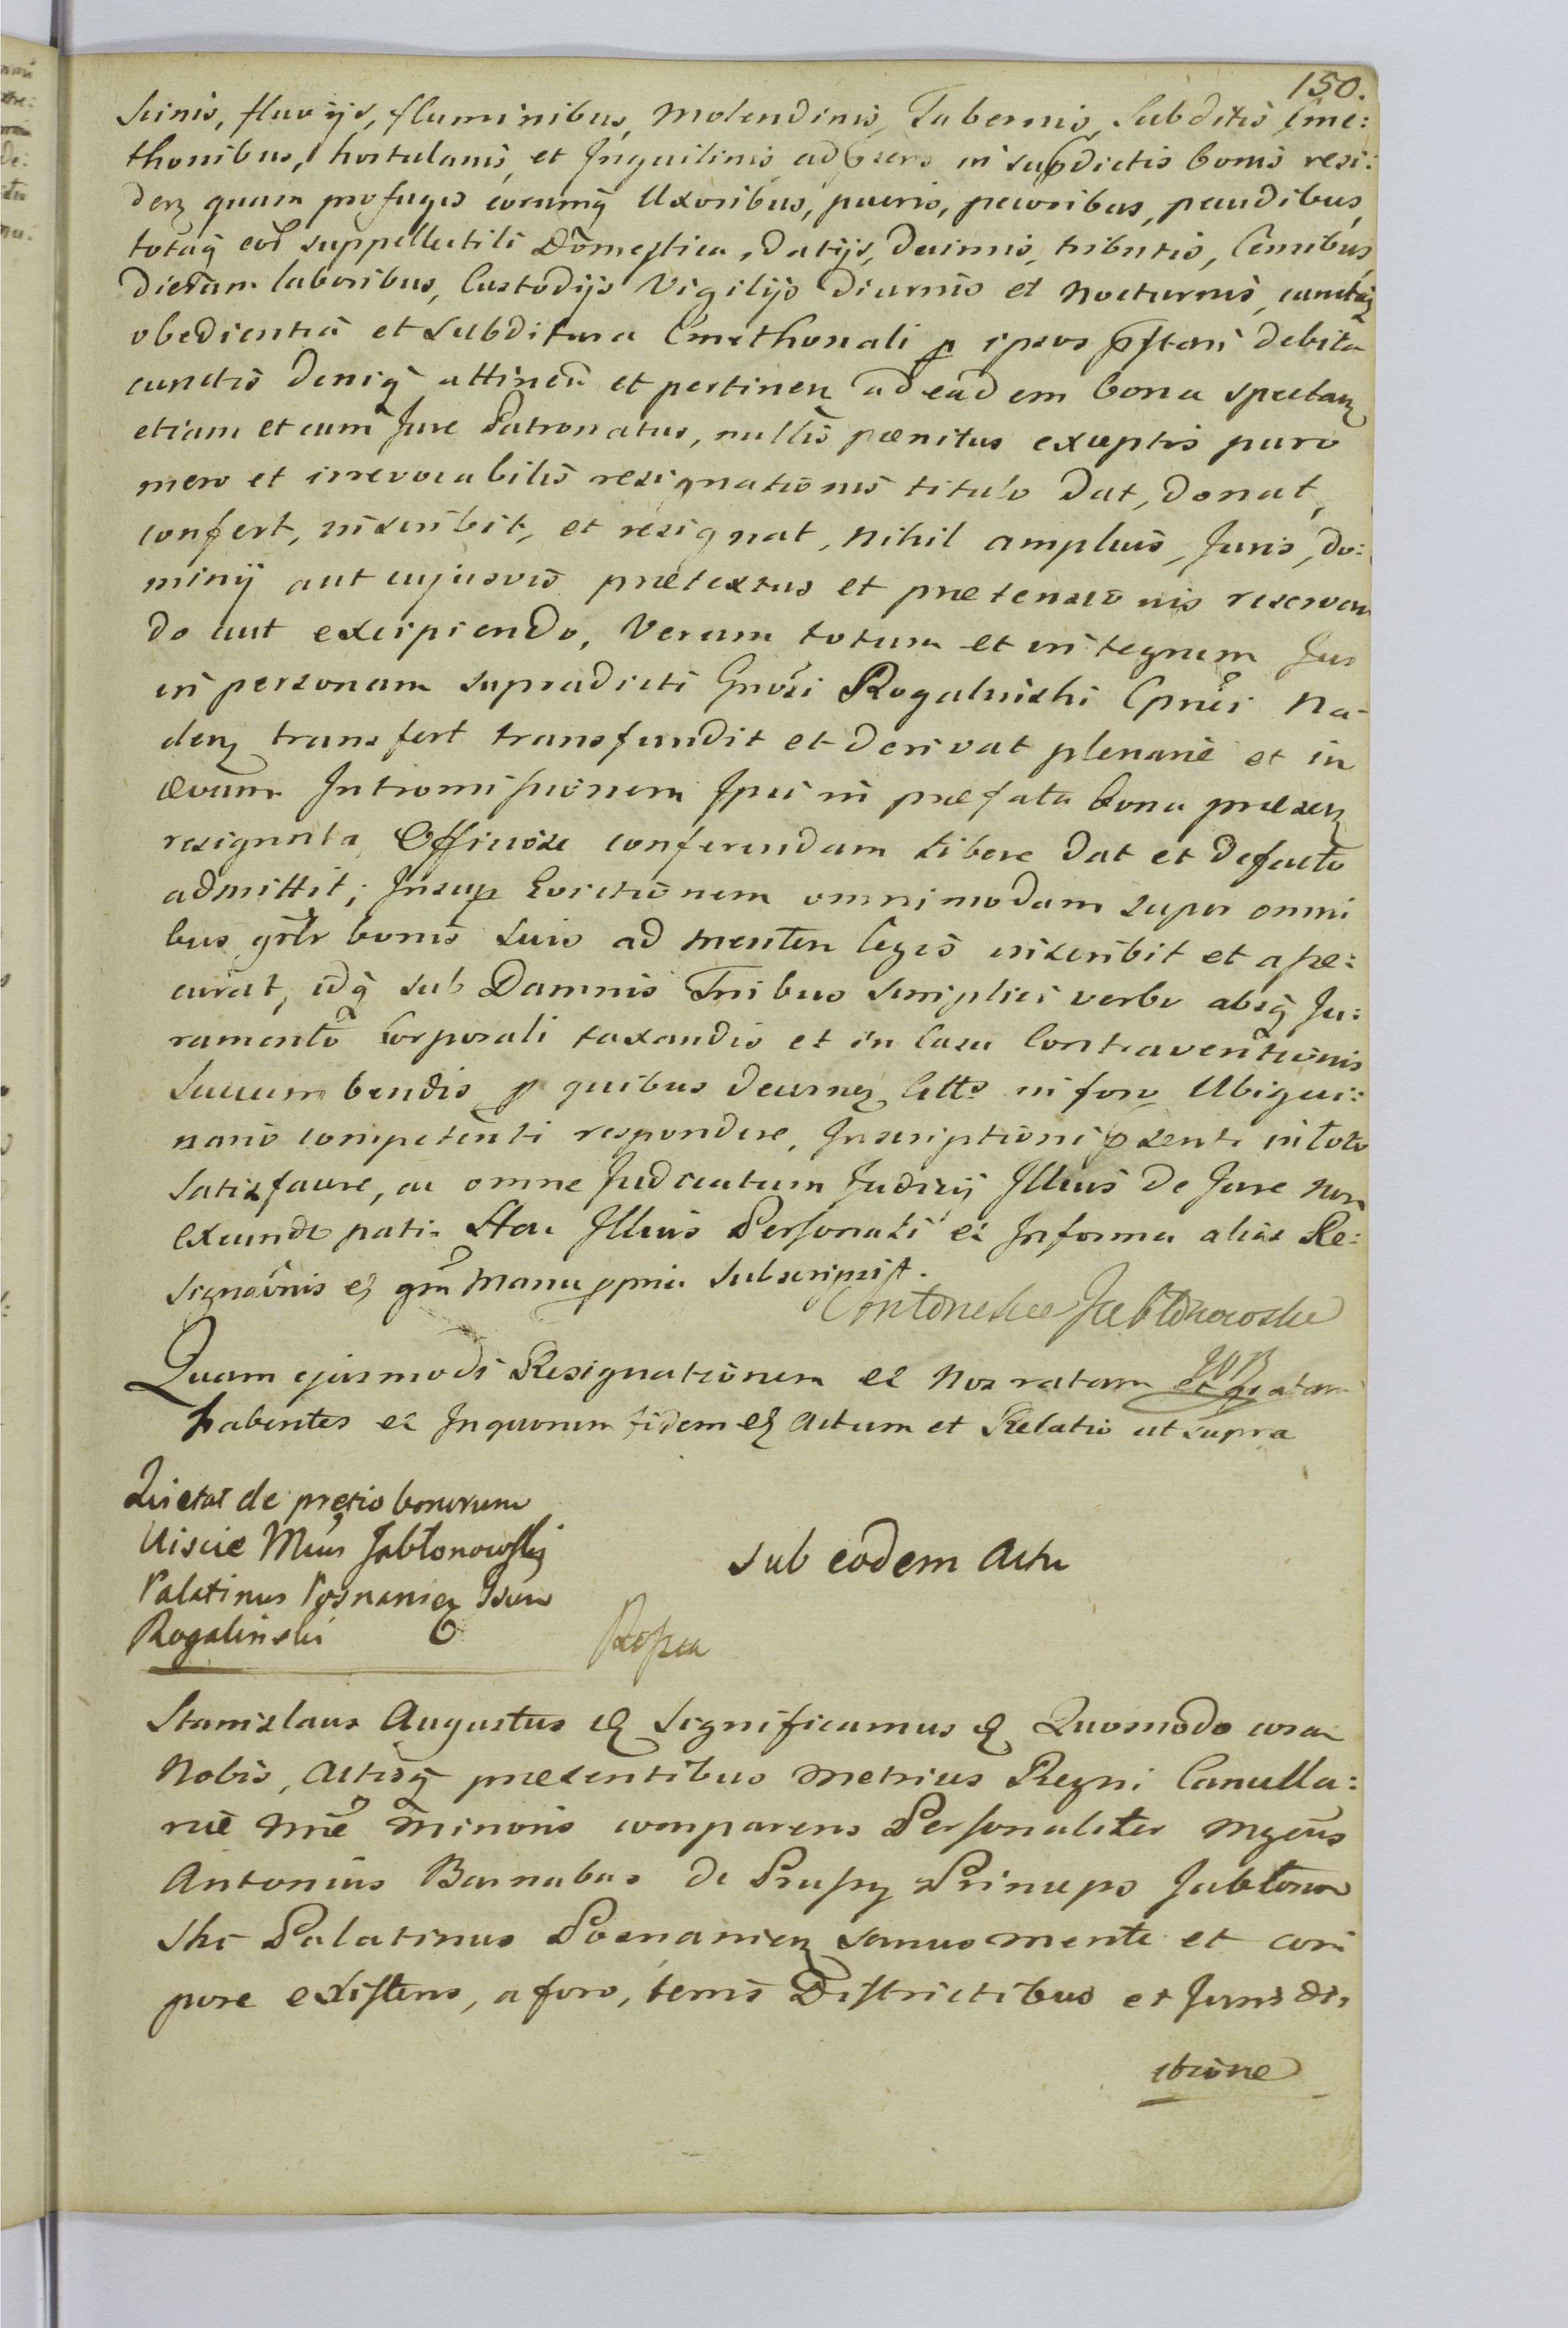 150.
scinis, fluvijs, fluminibus, Molendinis, Tabernis, Subditis Cme:
thonibus, hortulanis, et Inquilinis ad psens in supdictis bonis resi:
denz quam profugis eorumq Uxoribus, pueris, pecoribus, pecudibus,
totaq eor suppellectili Domestica, datijs, decimis, tributis, Censibus,
dieram laboribus, Custodijs Vigilijs diurnis et Nocturnis, cunctaq
obedientia et subditura Cmethonali p ipsos pstari debita
cunctis deniq attinen et pertinen ad eadem bona spectanz
etiam et cum Jure Patronatus, nullis pænitus exceptis puro
mero et irrevocabilis resignationis titulo dat, donat,
confert, inscribit, et resignat, Nihil amplius, Juris, do:
minij aut cujusvis prætextus et prætensionis reservan
do aut excipiendo, Verum totum et integrum Jus
in personam supradicti Gnosi Rogalinski Cpnei Na-
denz transfert transfundit et derivat plenarie et in
ævum Intromissionem Ipsi in præfata bona præsenz
resignata Officiose conferendam libere dat et defacto
admittit; Insup Evictionem omnimodam super omni
bus gnlr bonis suis ad mentem legis inscribit et asse:
curat, idq sub Damnis Tribus simplici verbo absq Ju:
ramento Corporali taxandis et in Casu Contraventionis
succumbendis p quibus decernen Citts in foro Ubiqui:
nario competenti respondere, Inscriptioni psenti in toto
satisfacere, ac omne Judicatum Judicij Illius de Jure non
exeundo pati. Hac Illius Personali et Informa alias Re:
signaonis et qm Manu ppria subscripsist.
Antoni Jabłonowski
Quam ejusmodi Resignationem et Nos ratam et gratam
habentes et Inquorum fidem et Actum et Relatio ut supra
Quietat de pretio bonorum
Uiscie Mcus Jabłonowski
Palatinus Posnanien Gsum
Rogalinski
Sub eodem Actu
Stanislaus Augustus et Significamus et Quomodo coram
Nobis, Actisq præsentibus Metrices Regni Cancella:
riæ Nræ Minoris comparens Personaliter Mgcus
Antonius Barnabas de Prussy Princeps Jabłonow
ski Palatinus Posnanien sanus mente et cor
pore existens, a foro, terris Districtibus et Juris di,
ctione